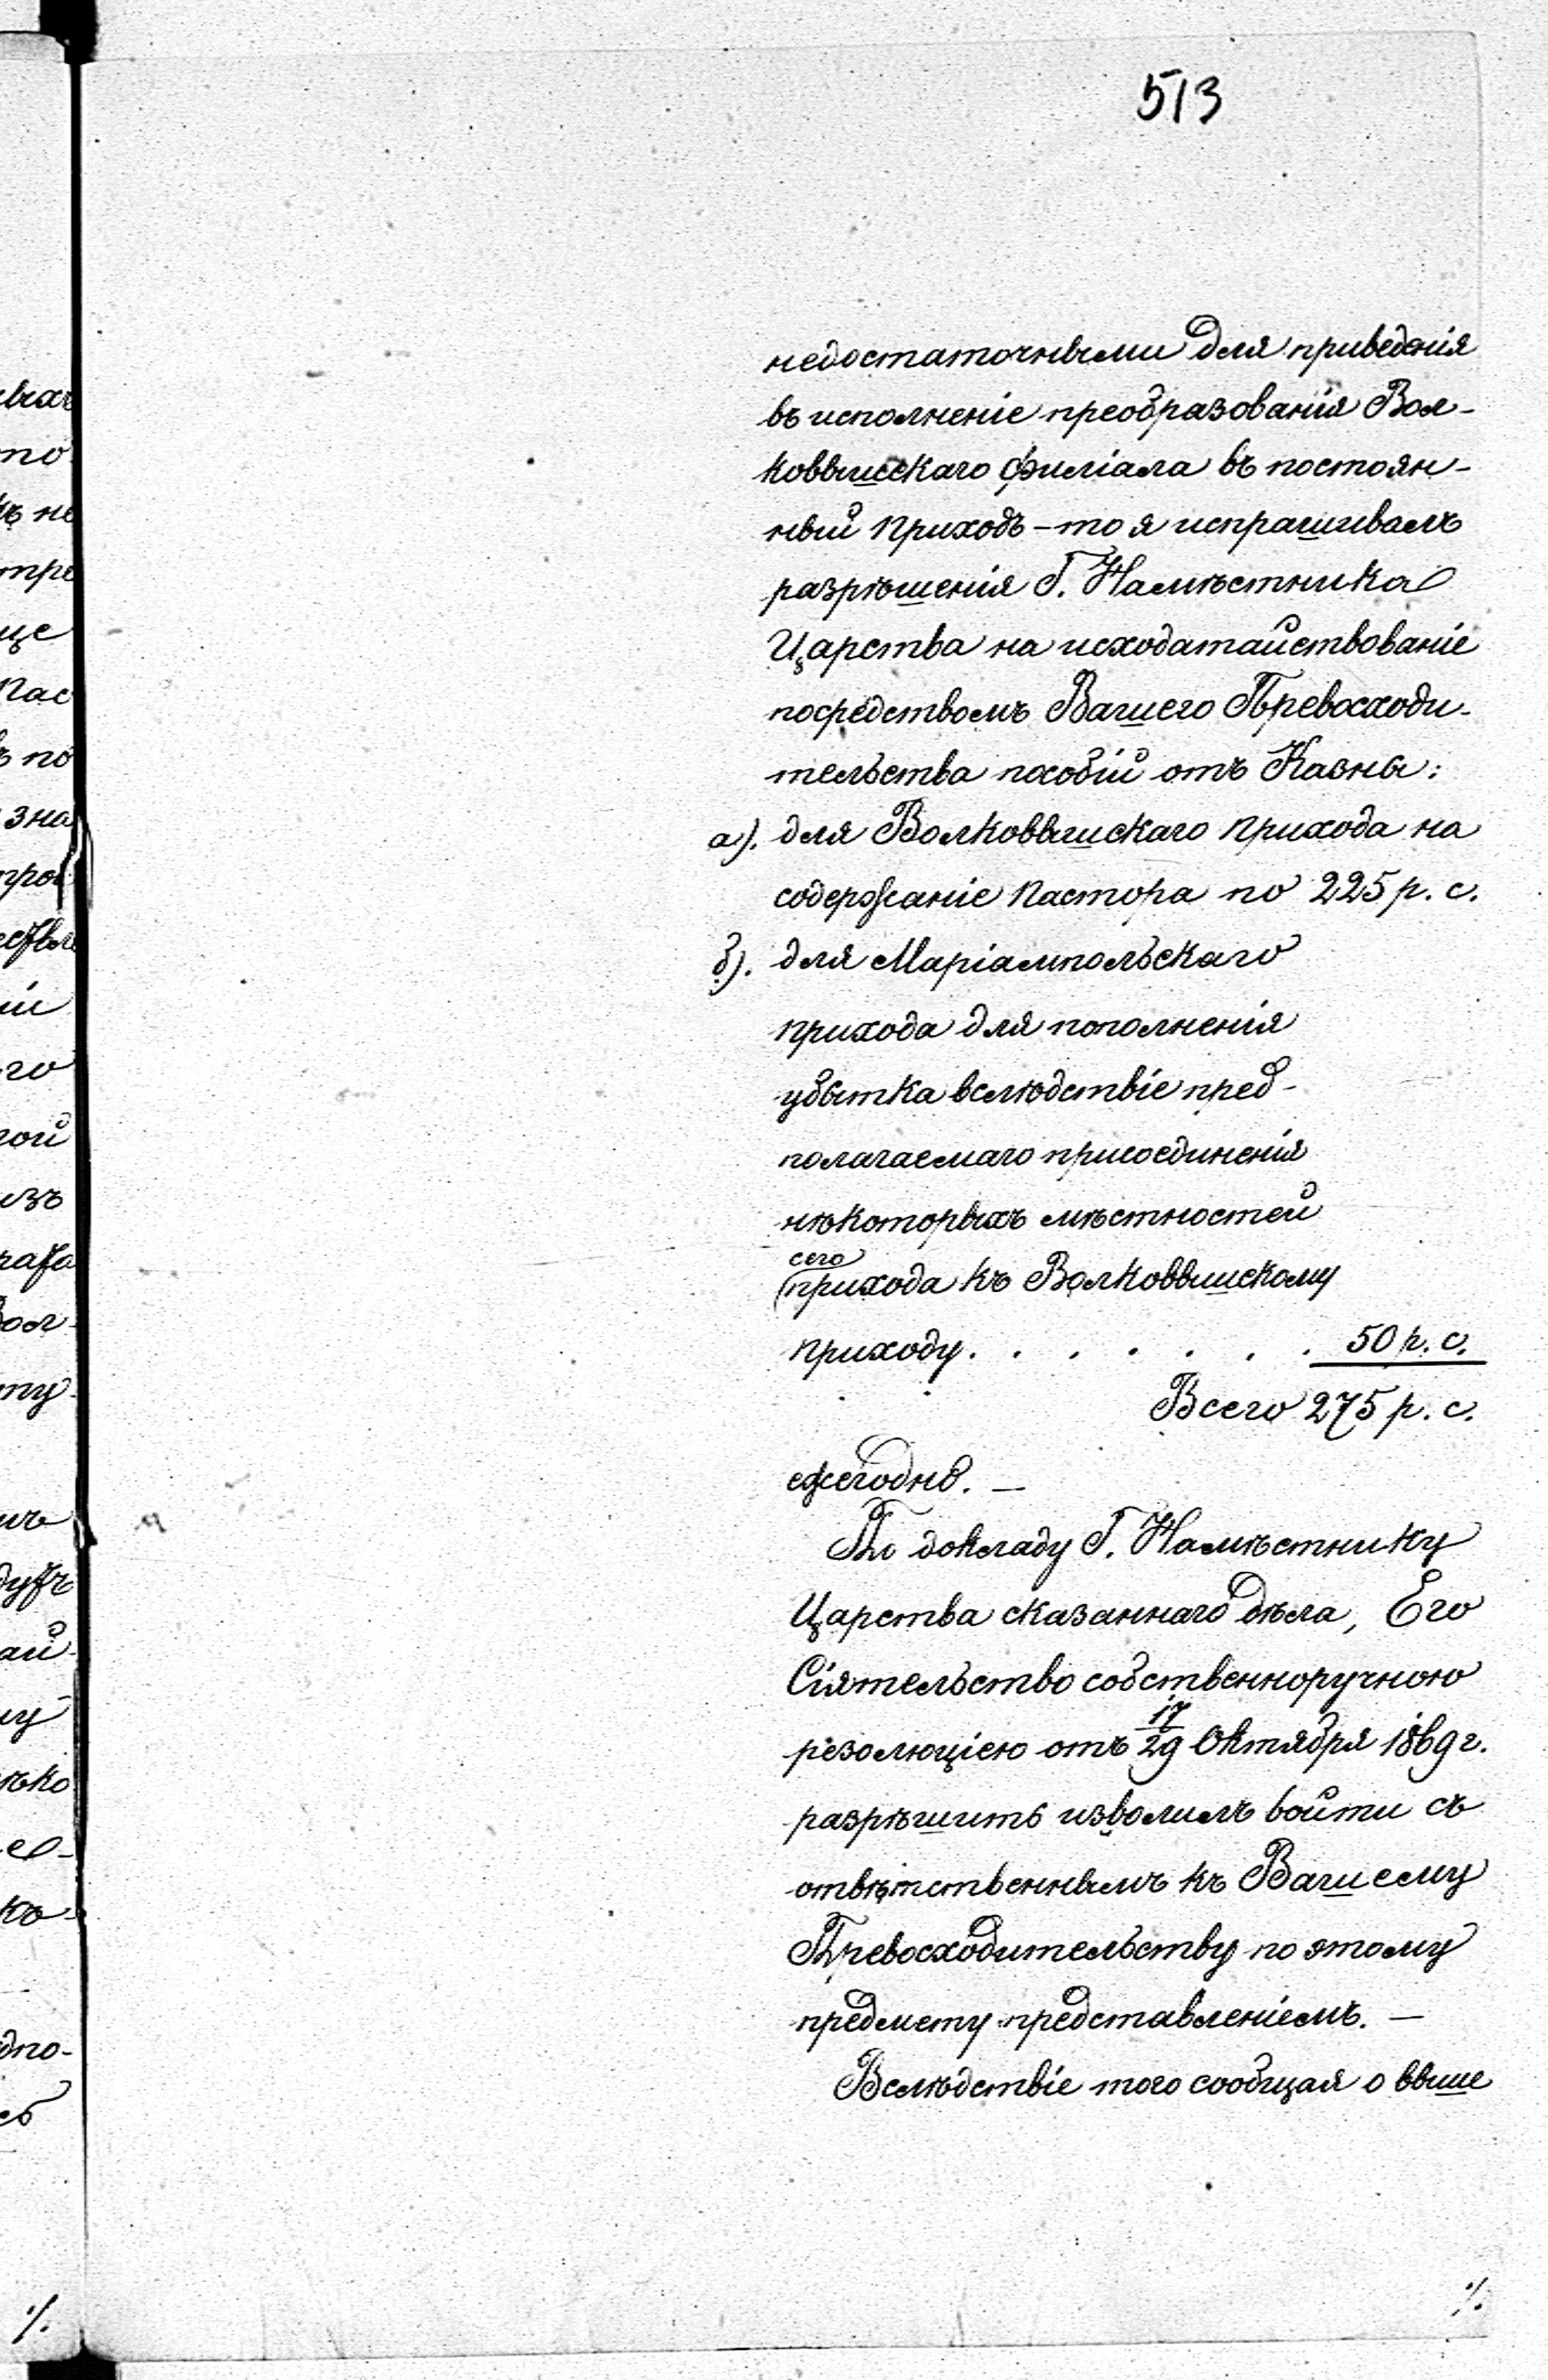 513
недостаточными для приведенія
въ исполненіе преобразованія Вол-
ковышскаго филіала въ постоян-
ный приходъ - то я испрашивалъ
разрѣшенія Г. Намѣстника
Царства на исходатайствованіе
посредствомъ Вашего Превосходи-
тельства пособій отъ Казны:
а). для Волковышскаго прихода на
содержаніе Пастора по 225 р. с.
б). для Маріампольскаго
прихода для пополненія
убытка вслѣдствіе пред-
полагаемаго присоединенія
нѣкоторыхъ мѣстностей
сего
прихода къ Волковышскому
приходу. . . . . . . 50 р. с.
Всего 275 р. с.
ежегодно. —
По докладу Г. Намѣстнику
Царства сказаннаго дѣла, Его
Сіятельство собственноручною
резолюціею отъ 17/29 Октября 1869 г.
разрѣшить изволилъ войти съ
отвѣтственнымъ къ Вашему
Превосходительству по этому
предмету представленіемъ. —
Вслѣдствіе того сообщая о выше
%.